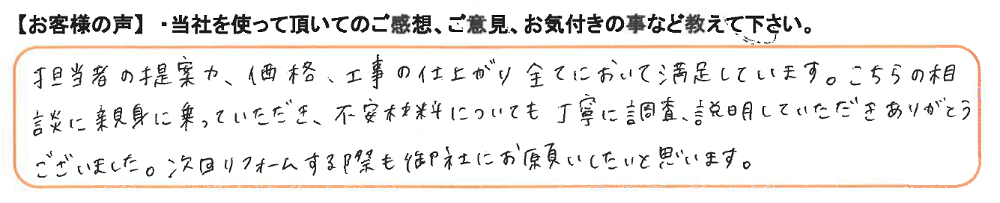 【お客様の声】・当社を使って頂いてのご感想、ご意見、お気付きの事など教えて下さい。
担当者の提案力、価格、工事の仕上がり全てにおいて満足しています。こちらの相
談に親身に乗っていただき、不安材料についても丁寧に調査、説明していただきありがとう
ございました。次回リフォームする際も御社にお願いしたいと思います。